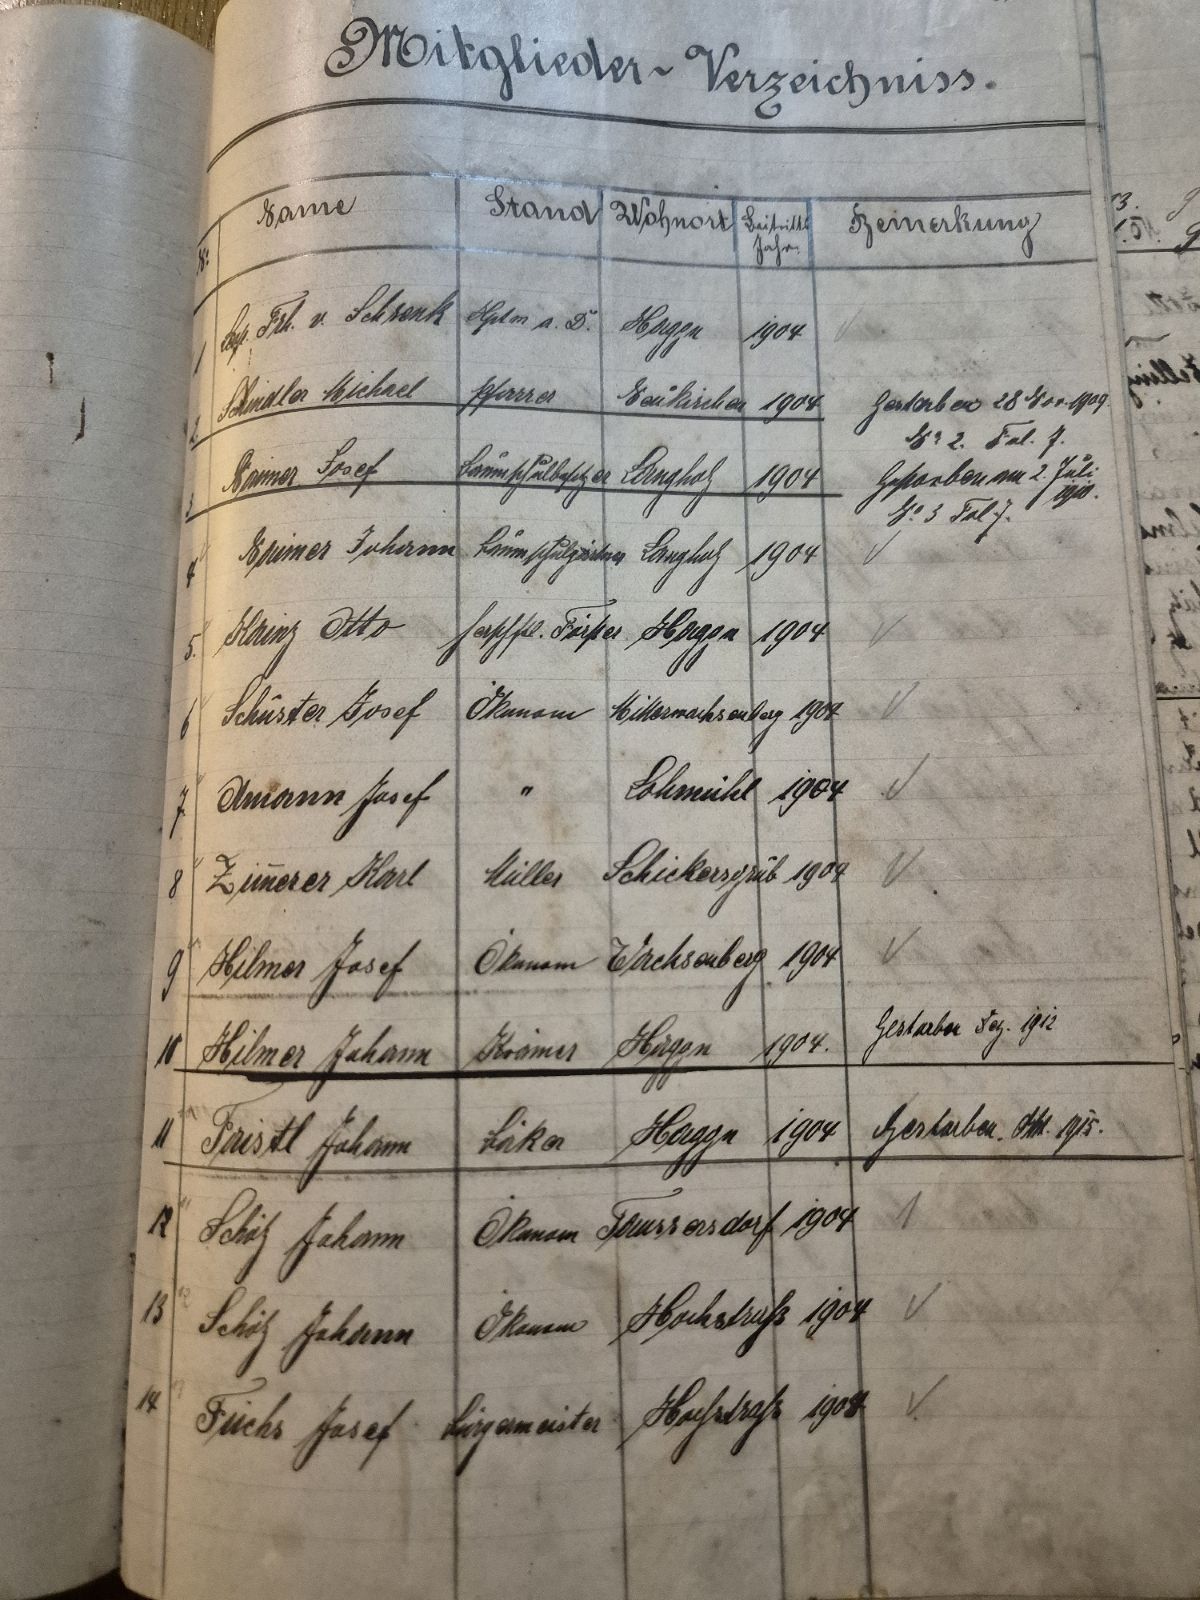 Mitglieder-Verzeichniss.
No. Name Stand Wohnort Beitritts Jahr. Bemerkung
1 Frh. v. Schrenk Hptm a. D. Haggn 1904
2 Schindler Michael Pfarrer Neukirchen 1904 Gestorben 28 Nov. 1909.
No 2. Fol. 7.
3 Raimer Josef Baumschulbesitzer Langholz 1904 Gestorben am 2. Juli 1910.
No 3 Fol. 7.
4 Raimer Johann Baumschulgärtner Langholz 1904
5. Hainz Otto Förster Haggn 1904
6 Schuster Josef Ökonom Mitterwachsenberg 1904
7 Amann Josef " Lohmühl 1904
8 Zim̄erer Karl Müller Schickersgrub 1904
9 Hilmer Josef Ökonom Wachsenberg 1904
10 Hilmer Johann Krämer Haggn 1904. Gestorben Dez. 1912
11 Fristl Johann Bäker Haggn 1904 Gestorben. Okt. 1915.
12 Schötz Johann Ökonom 1904
13 Schötz Johann Ökonom Hochstraß 1904
14 Fuchs Josef Bürgermeister Hochstraß 1904